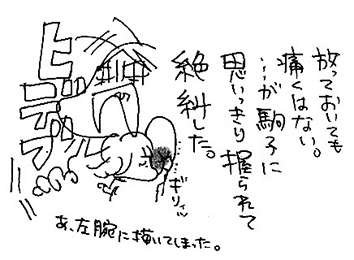 放っておいても
痛くはない。
…が駒子に
思いっきり握られて
絶叫した。
ヒデブ
…ギリィッ
あ、左腕に描いてしまった。